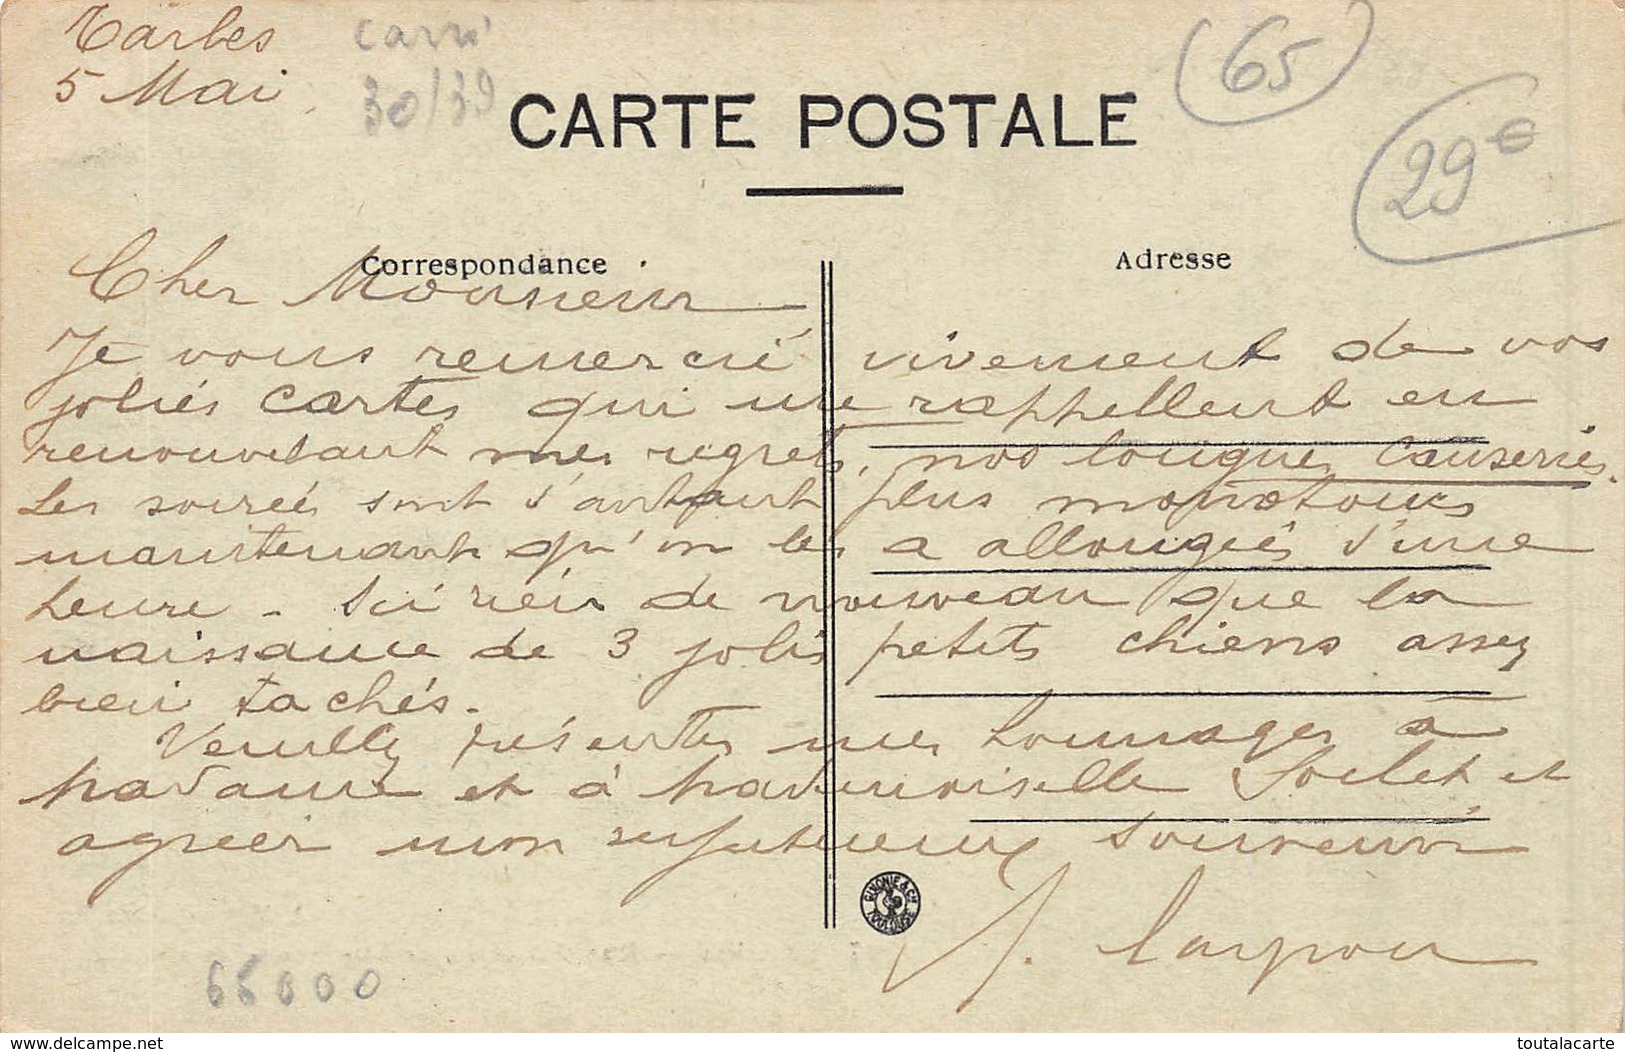 Tarbes
5 Mai
Carré
30/39
(65)
29€
CARTE POSTALE
Correspondance
Adresse
Cher Monsieur
Je vous remercié vivement de vos
joliés cartes qui me rappellent en
renouvelant mes regrets, nos longues causeries.
Les soireés sont d'autant plus monotones
maintenant qu'on les a allongées d'une
heure - Ici rien de nouveau que la
naissance de 3 jolis petits chiens assez
bien tachés.
Veuillez présenter mes homages à
Madame et à Mademoiselle et
agreer mon respectueux souvenir
66000
delcampe.net
toutalacarte